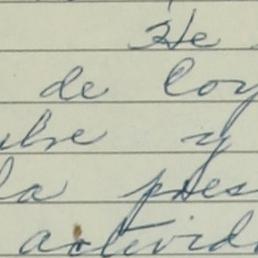 He
de Coy
ubre y
la pres
activid